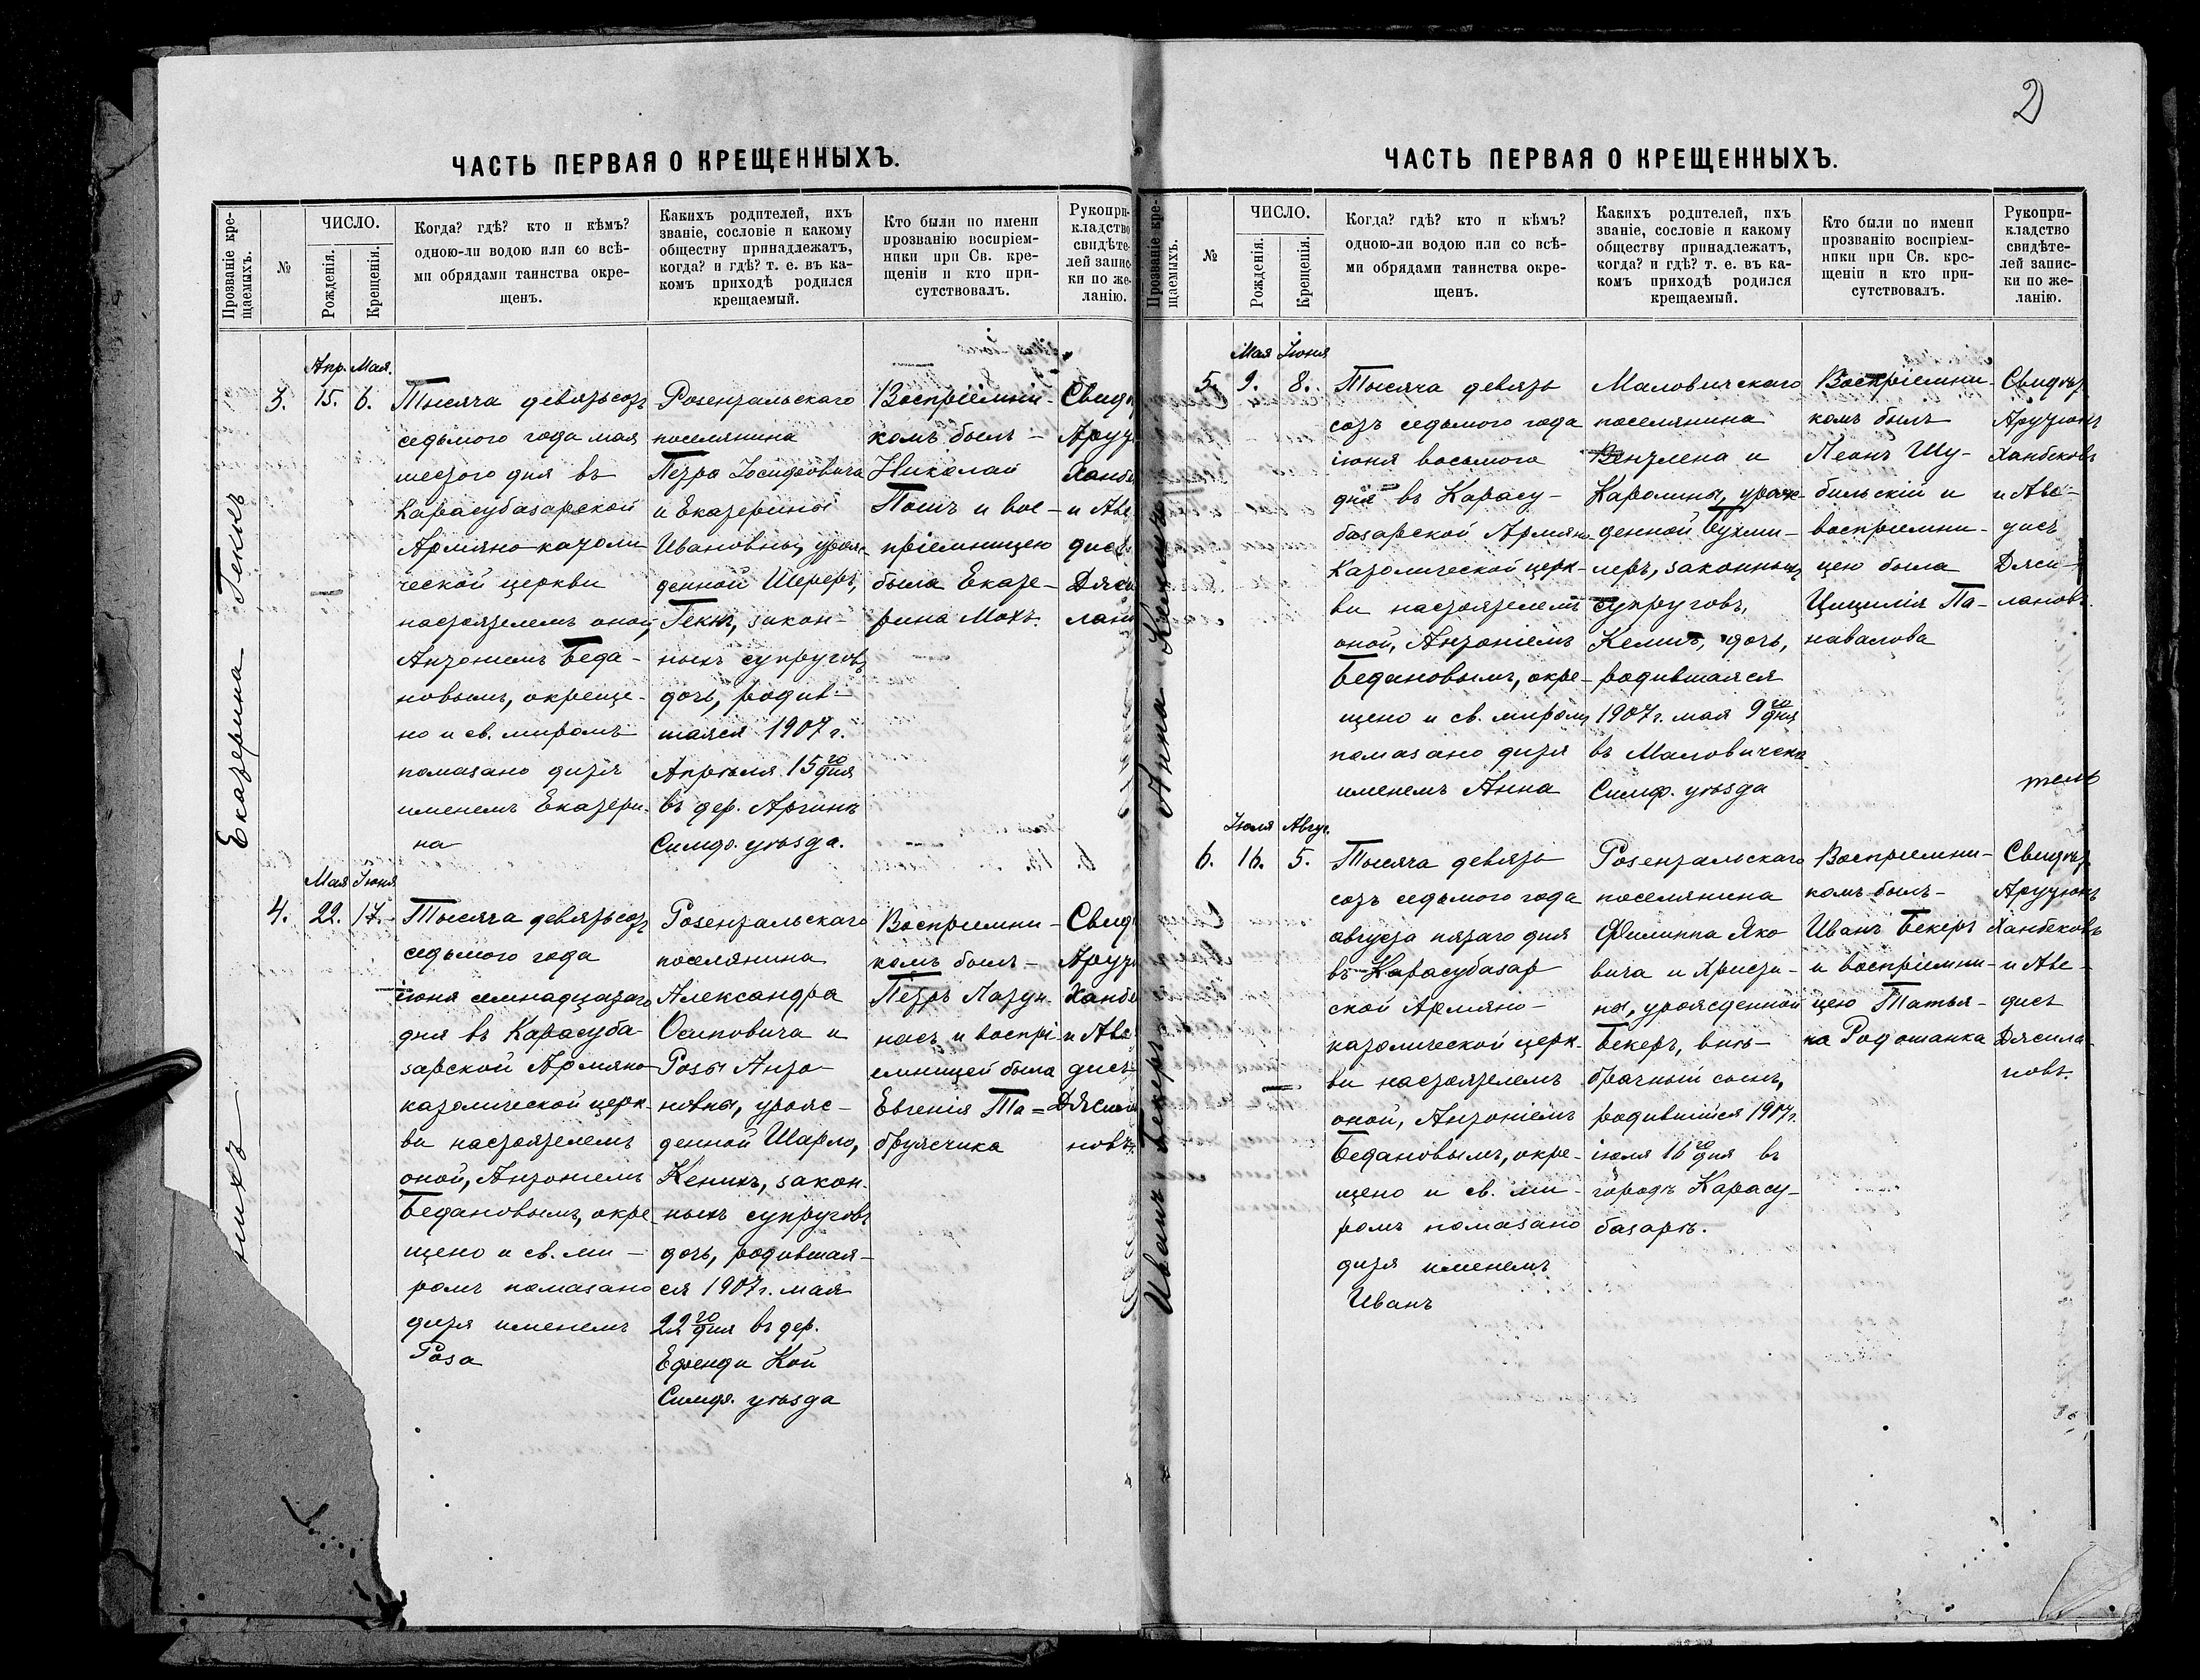 2
ЧАСТЬ ПЕРВАЯ О КРЕЩЕННЫХЪ.
Прозваніе кре-
щаемыхъ.
№
ЧИСЛО.
Рожденія.
Крещенія.
Когда? гдѣ? кто и кѣмъ?
одною-ли водою или со всѣ-
ми обрядами таинства окре-
щенъ.
Какихъ родителей, ихъ
званіе, сословіе и какому
обществу принадлежатъ,
когда? и гдѣ? т. е. въ ка-
комъ приходѣ родился
крещаемый.
Кто были по имени
прозванію воспріем-
ники при Св. кре-
щеніи и кто при-
сутствовалъ.
Рукопри-
кладство
свидѣте-
лей запис-
ки по же-
ланію.
Екатерина Геккъ
3.
Апр.
15.
Мая.
6.
Тысяча девятьсотъ
седьмого года мая
шестого дня въ
Карасубазарской
Армяно-католи
ческой церкви
настоятелемъ оной,
Антоніемъ Беда-
новымъ, окреще-
но и св. миромъ
помазано дитя
именемъ Екатери-
на
Розентальскаго
поселянина
Петра Іосифовича
и Екатерины
Ивановны, урож-
денной Шереръ,
Геккъ, закон-
ныхъ супруговъ
дочь, родив-
шаяся 1907 г.
Апрѣля 15го дня
въ дер. Аргинъ
Симф. уѣзда.
Воспріемни-
комъ былъ -
Николай
Пошъ и вос-
пріемницею
была Екате-
рина Мохъ.
Свид
Арут
Ханбе
и Аве
дисъ
Джси
лан
никъ
4.
Мая
22.
Іюня
17.
Тысяча девятьсотъ
седьмого года
іюня семнадцатаго
дня въ Карасуба
зарской Армяно-
католической церк-
ви настоятелемъ
оной, Антоніемъ
Бедановымъ, окре-
щено и св. ми-
ромъ помазано
дитя именемъ
Роза
Розентальскаго
поселянина
Александра
Осиповича и
Розы Анто-
новны, урож-
денной Шарло,
Кеникъ, закон-
ныхъ супруговъ
дочь, родившая-
ся 1907 г. мая
22го дня въ дер.
Ефенди Кой
Симф. уѣзда
Воспріемни-
комъ былъ -
Петръ
и воспрі-
емницей была
Евгенія Та=
бружчика
Свид
Арут
Ханбе
и Аве
дисъ
новъ.
ЧАСТЬ ПЕРВАЯ О КРЕЩЕННЫХЪ.
Прозваніе кре-
щаемыхъ.
№
ЧИСЛО.
Рожденія.
Крещенія.
Когда? гдѣ? кто и кѣмъ?
одною-ли водою или со всѣ-
ми обрядами таинства окре-
щенъ.
Какихъ родителей, ихъ
званіе, сословіе и какому
обществу принадлежатъ,
когда? и гдѣ? т. е. въ ка-
комъ приходѣ родился
крещаемый.
Кто были по имени
прозванію воспріем-
ники при Св. кре-
щеніи и кто при-
сутствовалъ.
Рукопри-
кладство
свидѣте-
лей запис-
ки по же-
ланію.
Анна
5.
Мая
9.
Іюня
8.
Тысяча девять
сотъ седьмого года
іюня восьмого
дня въ Карасу-
базарской Армяно-
Католической церк-
ви настоятелемъ
оной, Антоніемъ
Бедановымъ, окре-
щено и св. миромъ
помазано дитя
именемъ Анна
поселянина
Венглена и
Каролины, урож-
денной Бухми-
леръ, законныхъ
супруговъ,
дочь,
родившаяся
1907 г. мая 9го дня
въ
Симф. уѣзда
Воспріемни-
комъ былъ
Леонъ Шу-
бильскій и
воспріемни-
цею была
Цицилія Па-
навалова
Свидѣт
Арутюнъ
Ханбековъ
и Аве-
дисъ
Джси-
лановъ.
тель
Иванъ Бекеръ
6.
Іюля
16.
Авгус.
5.
Тысяча девять
сотъ седьмого года
августа пятаго дня
въ Карасубазар
ской Армяно-
католической церк-
ви настоятелемъ
оной, Антоніемъ
Бедановымъ, окре-
щено и св. ми-
ромъ помазано
дитя именемъ
Иванъ
Розентальскаго
поселянина
Филиппа Яко
вича и Христи-
ны, урожденной
Бекеръ, внѣ-
брачный сынъ,
родившійся 1907 г.
іюля 16го дня въ
городѣ Карасу-
базарѣ.
Воспріемни-
комъ былъ-
Иванъ Бекеръ
и воспріемни-
цею Татья-
на Родошанка
Свидѣт
Арутюнъ
Ханбековъ
и Аве-
дисъ
Джсила-
новъ.